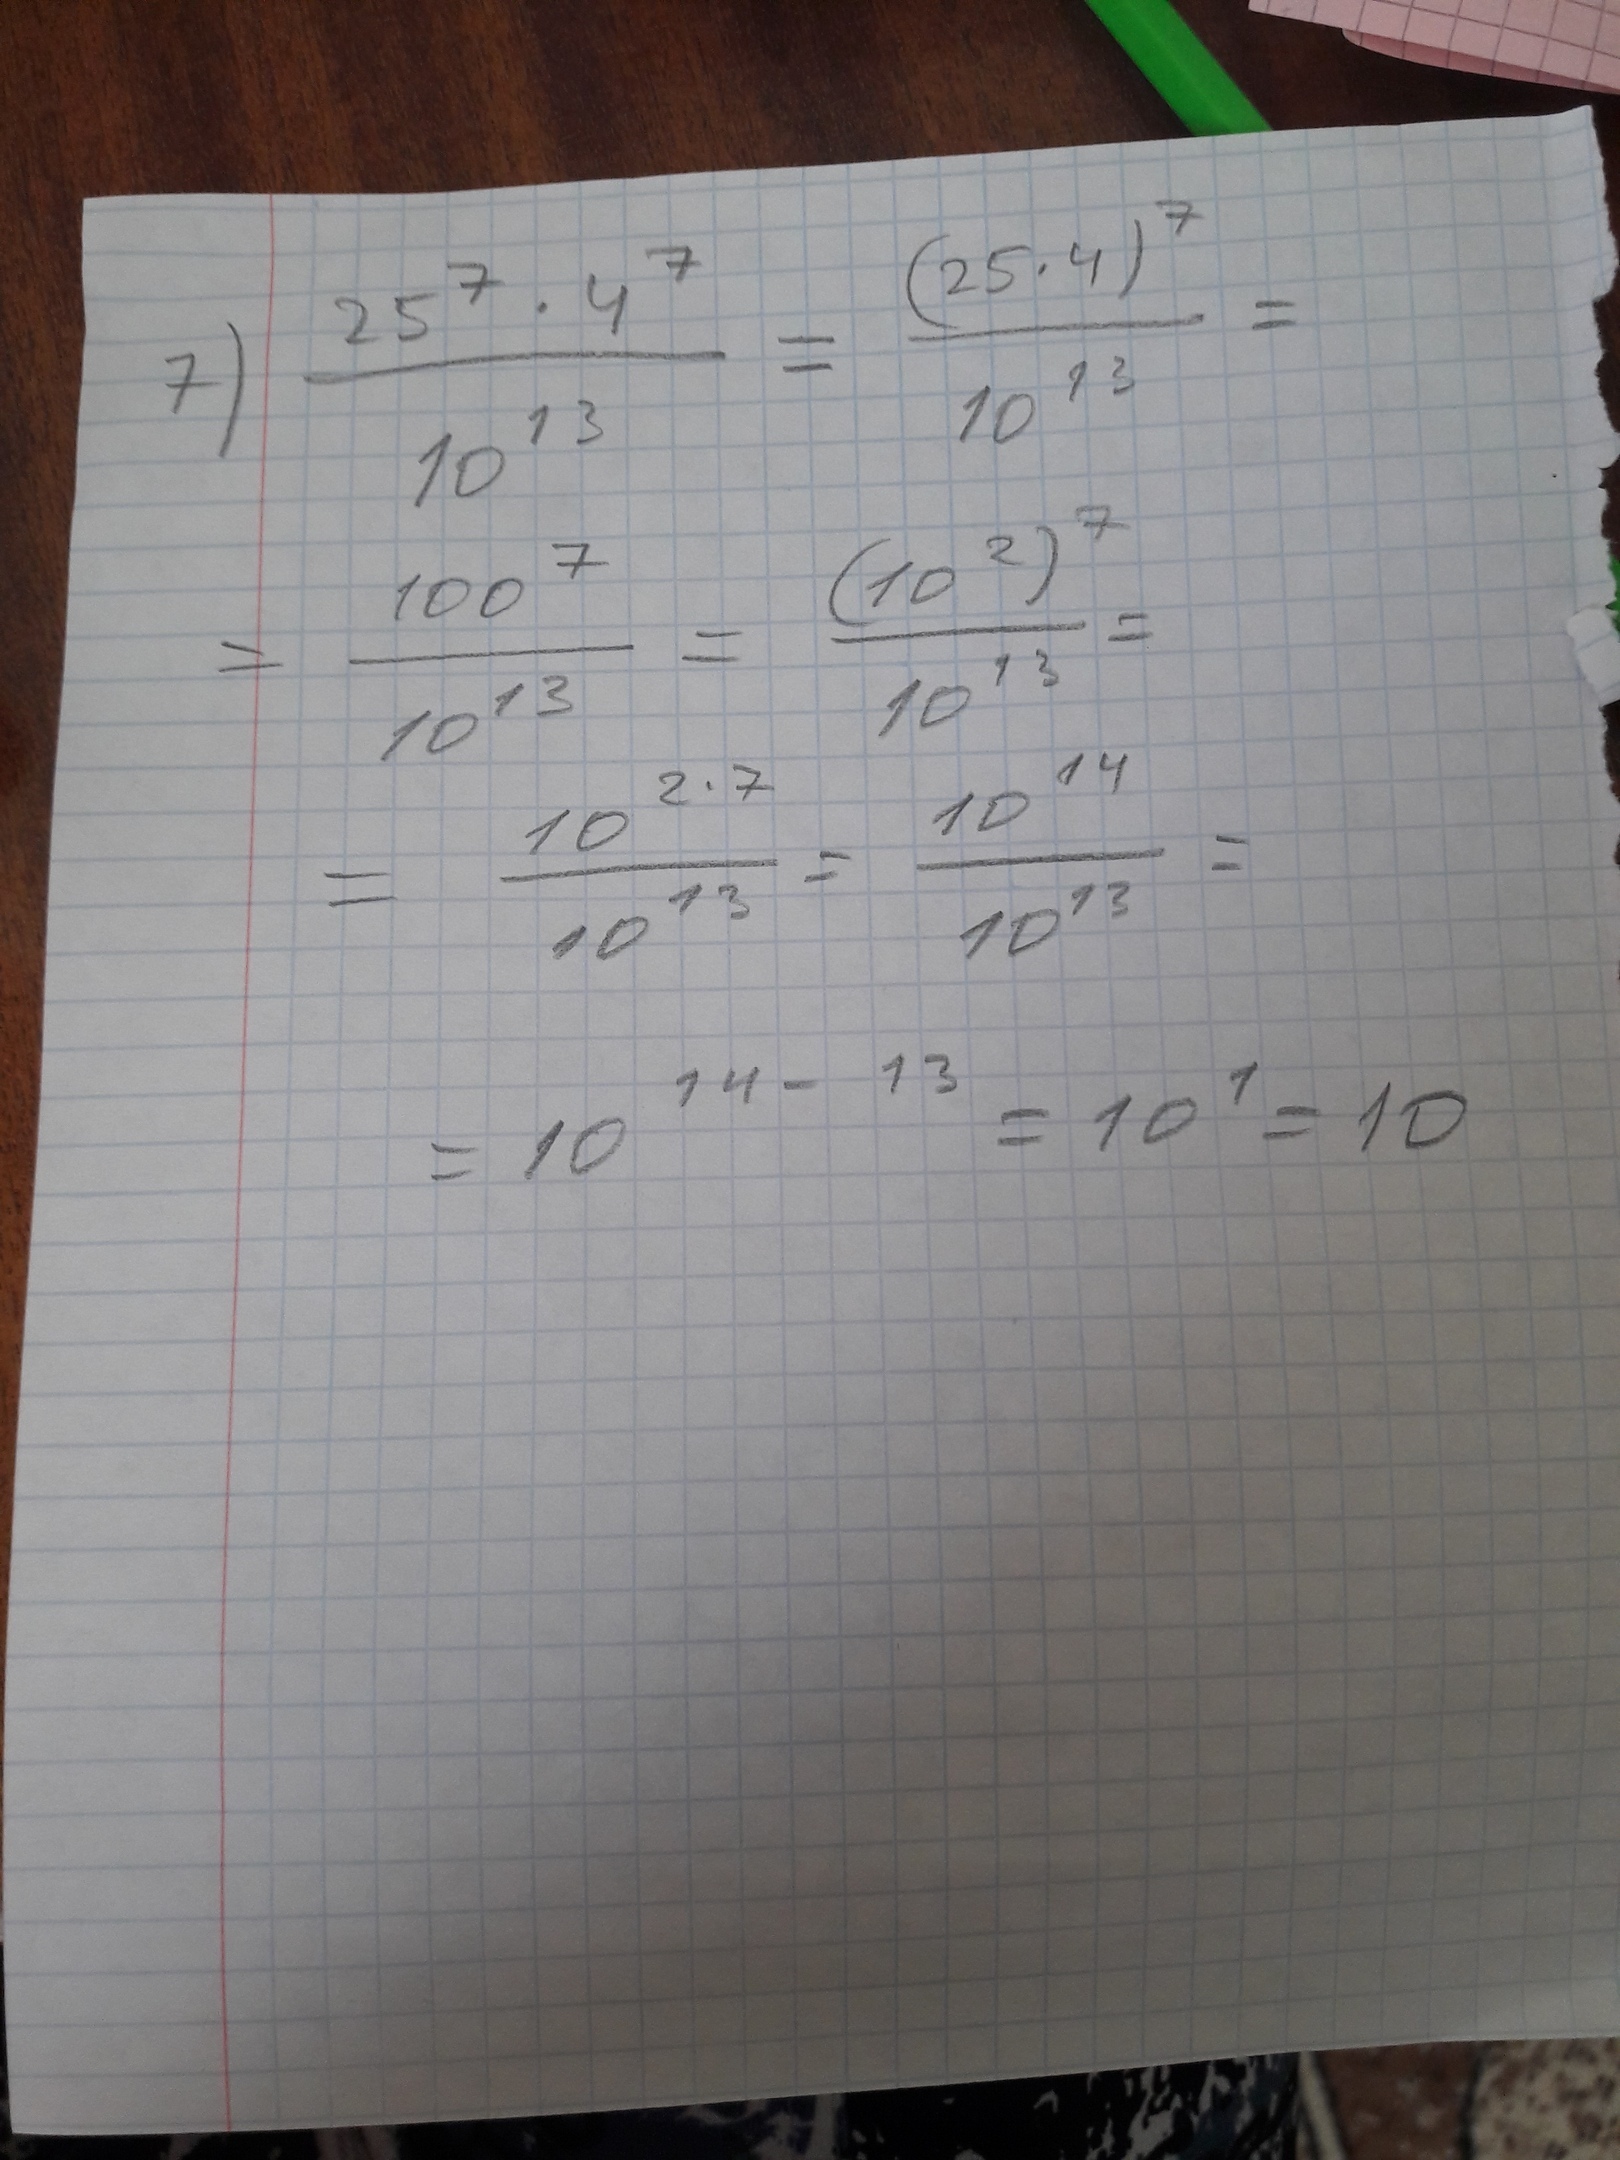 7) \frac{25^7 · 4^7}{10^{13}} = \frac{(25·4)^7}{10^{13}} =
= \frac{100^7}{10^{13}} = \frac{(10^2)^7}{10^{13}} =
= \frac{10^{2·7}}{10^{13}} = \frac{10^{14}}{10^{13}} =
= 10^{14-13} = 10^1 = 10